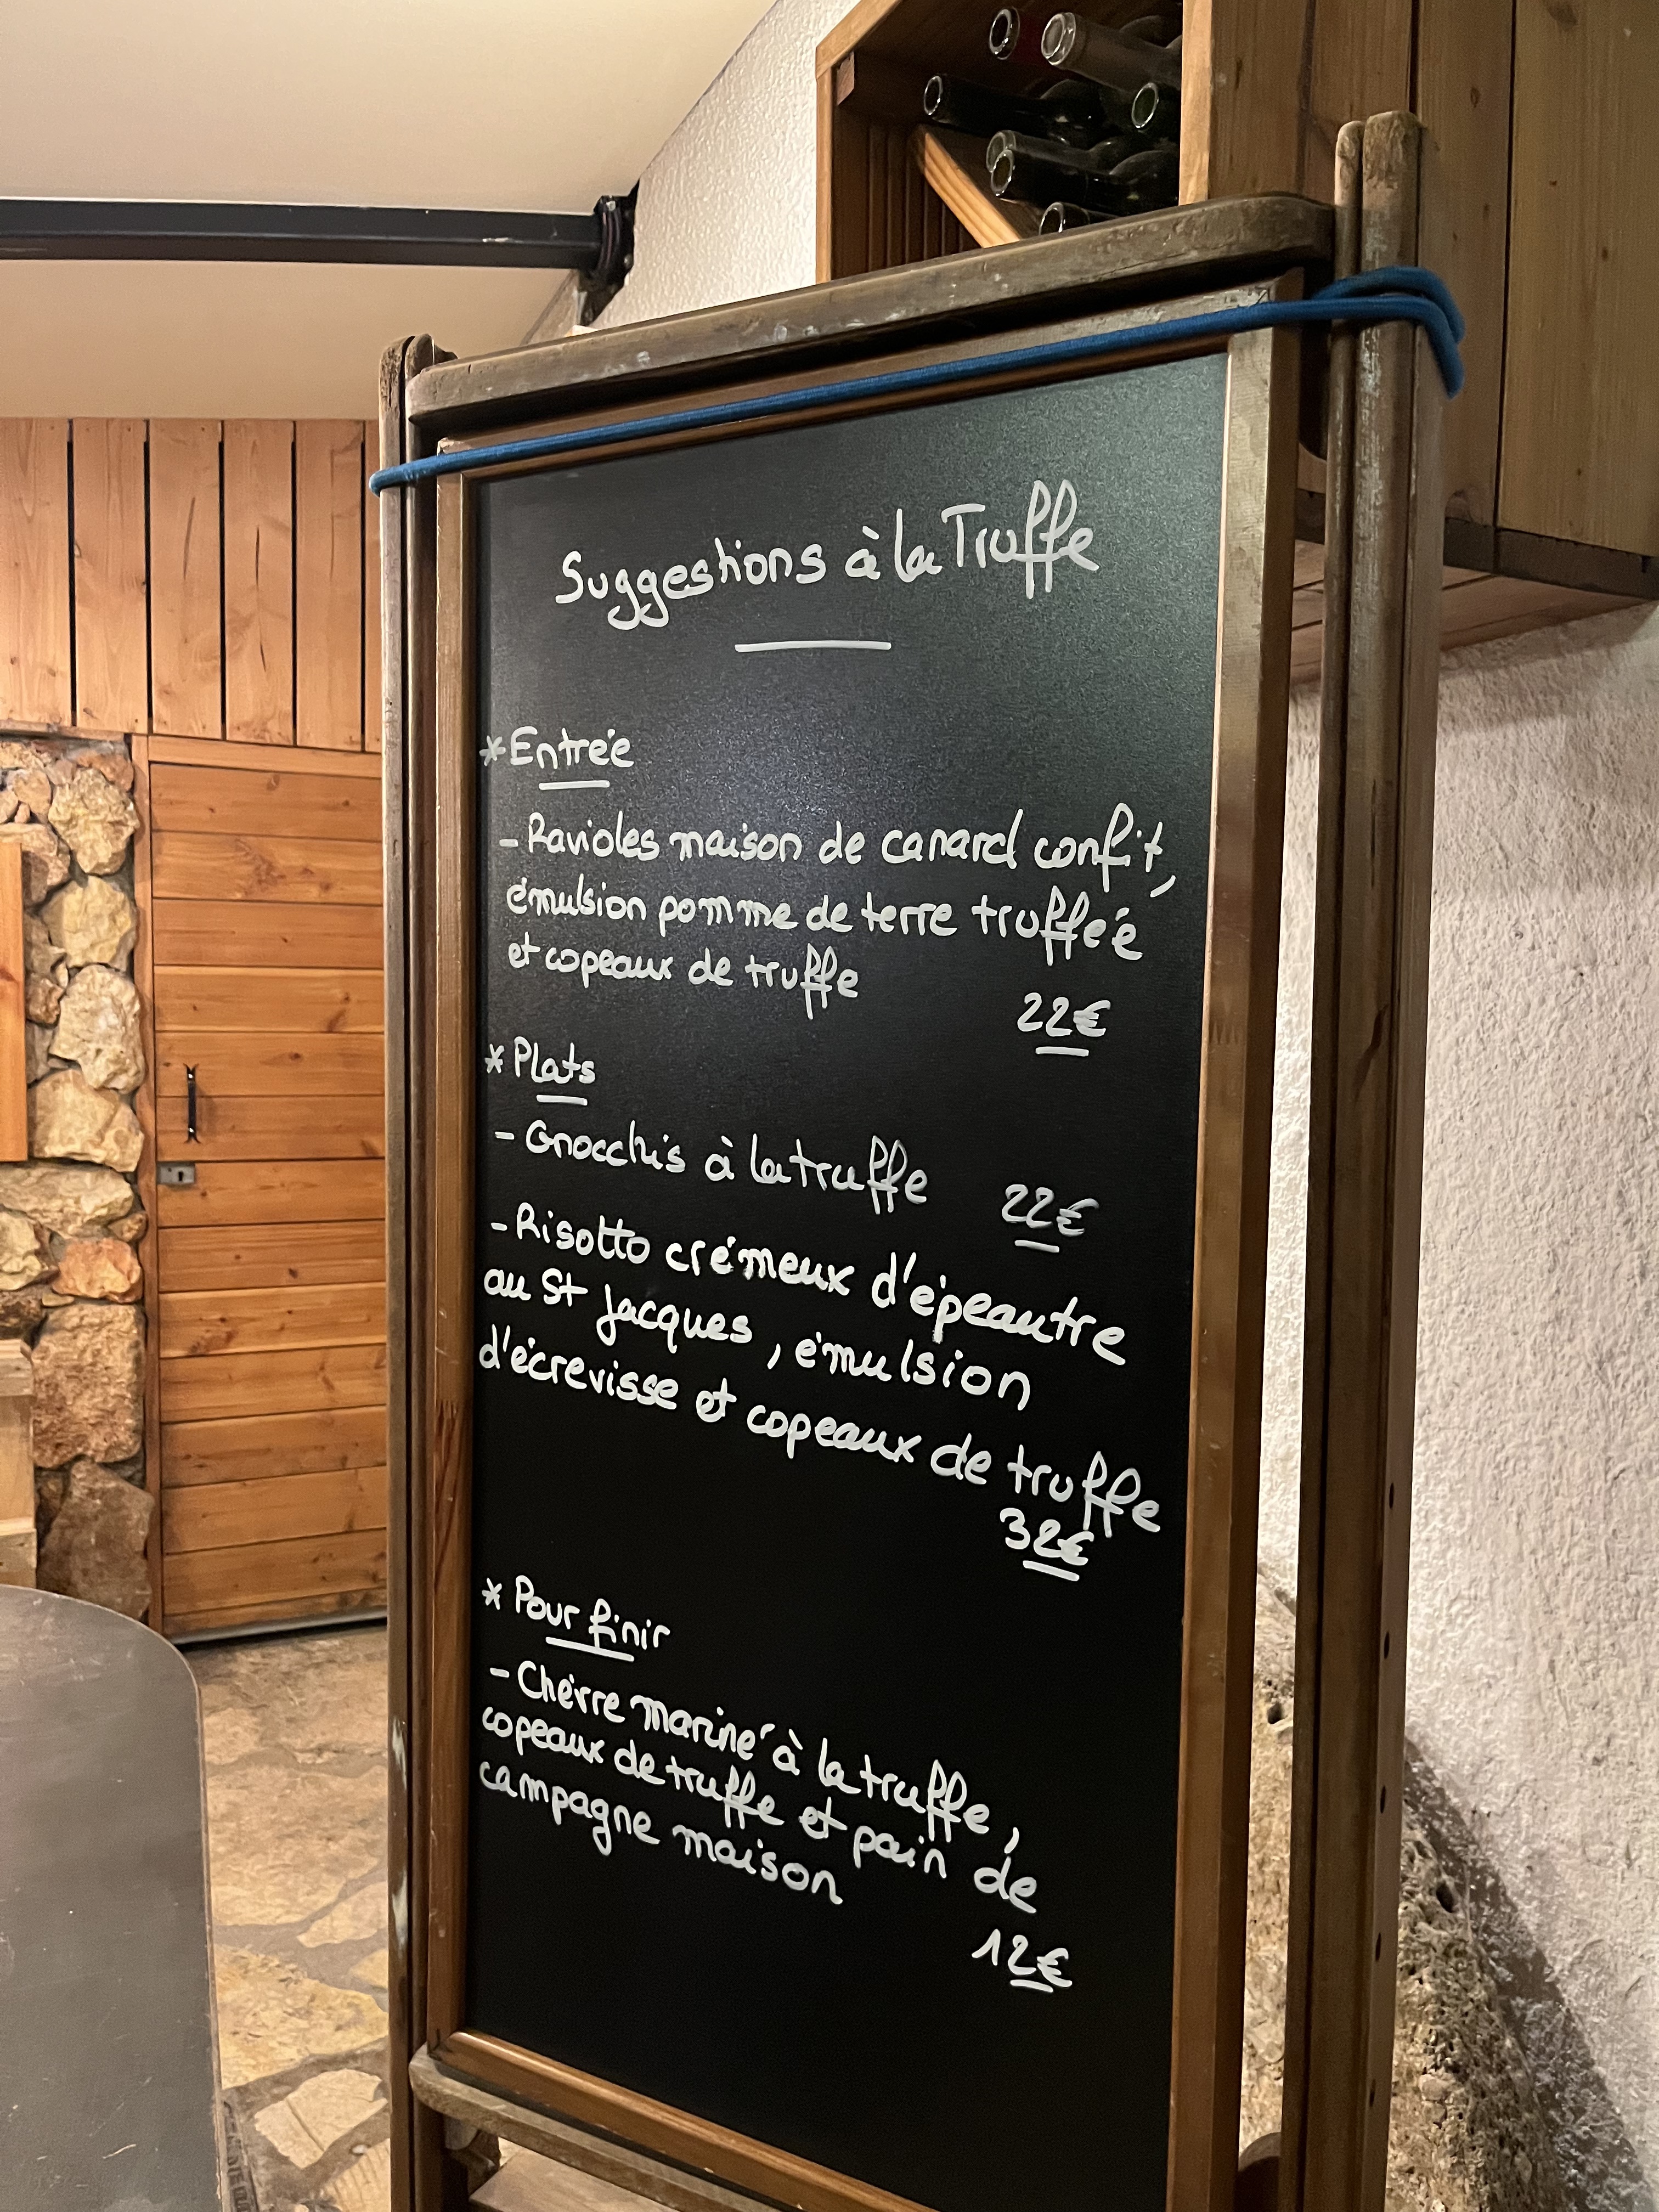 Suggestions à la Truffe
* Entrée
- Ravioles maison de canard confit,
émulsion pomme de terre trufféé
et copeaux de truffe
22€
* Plats
- Gnocchis à la truffe 22€
- Risotto crémeux d'épeautre
au St Jacques, émulsion
d'écrevisse et copeaux de truffe
32€
* Pour finir
- Chèvre mariné à la truffe,
copeaux de truffe et pain de
campagne maison
12€